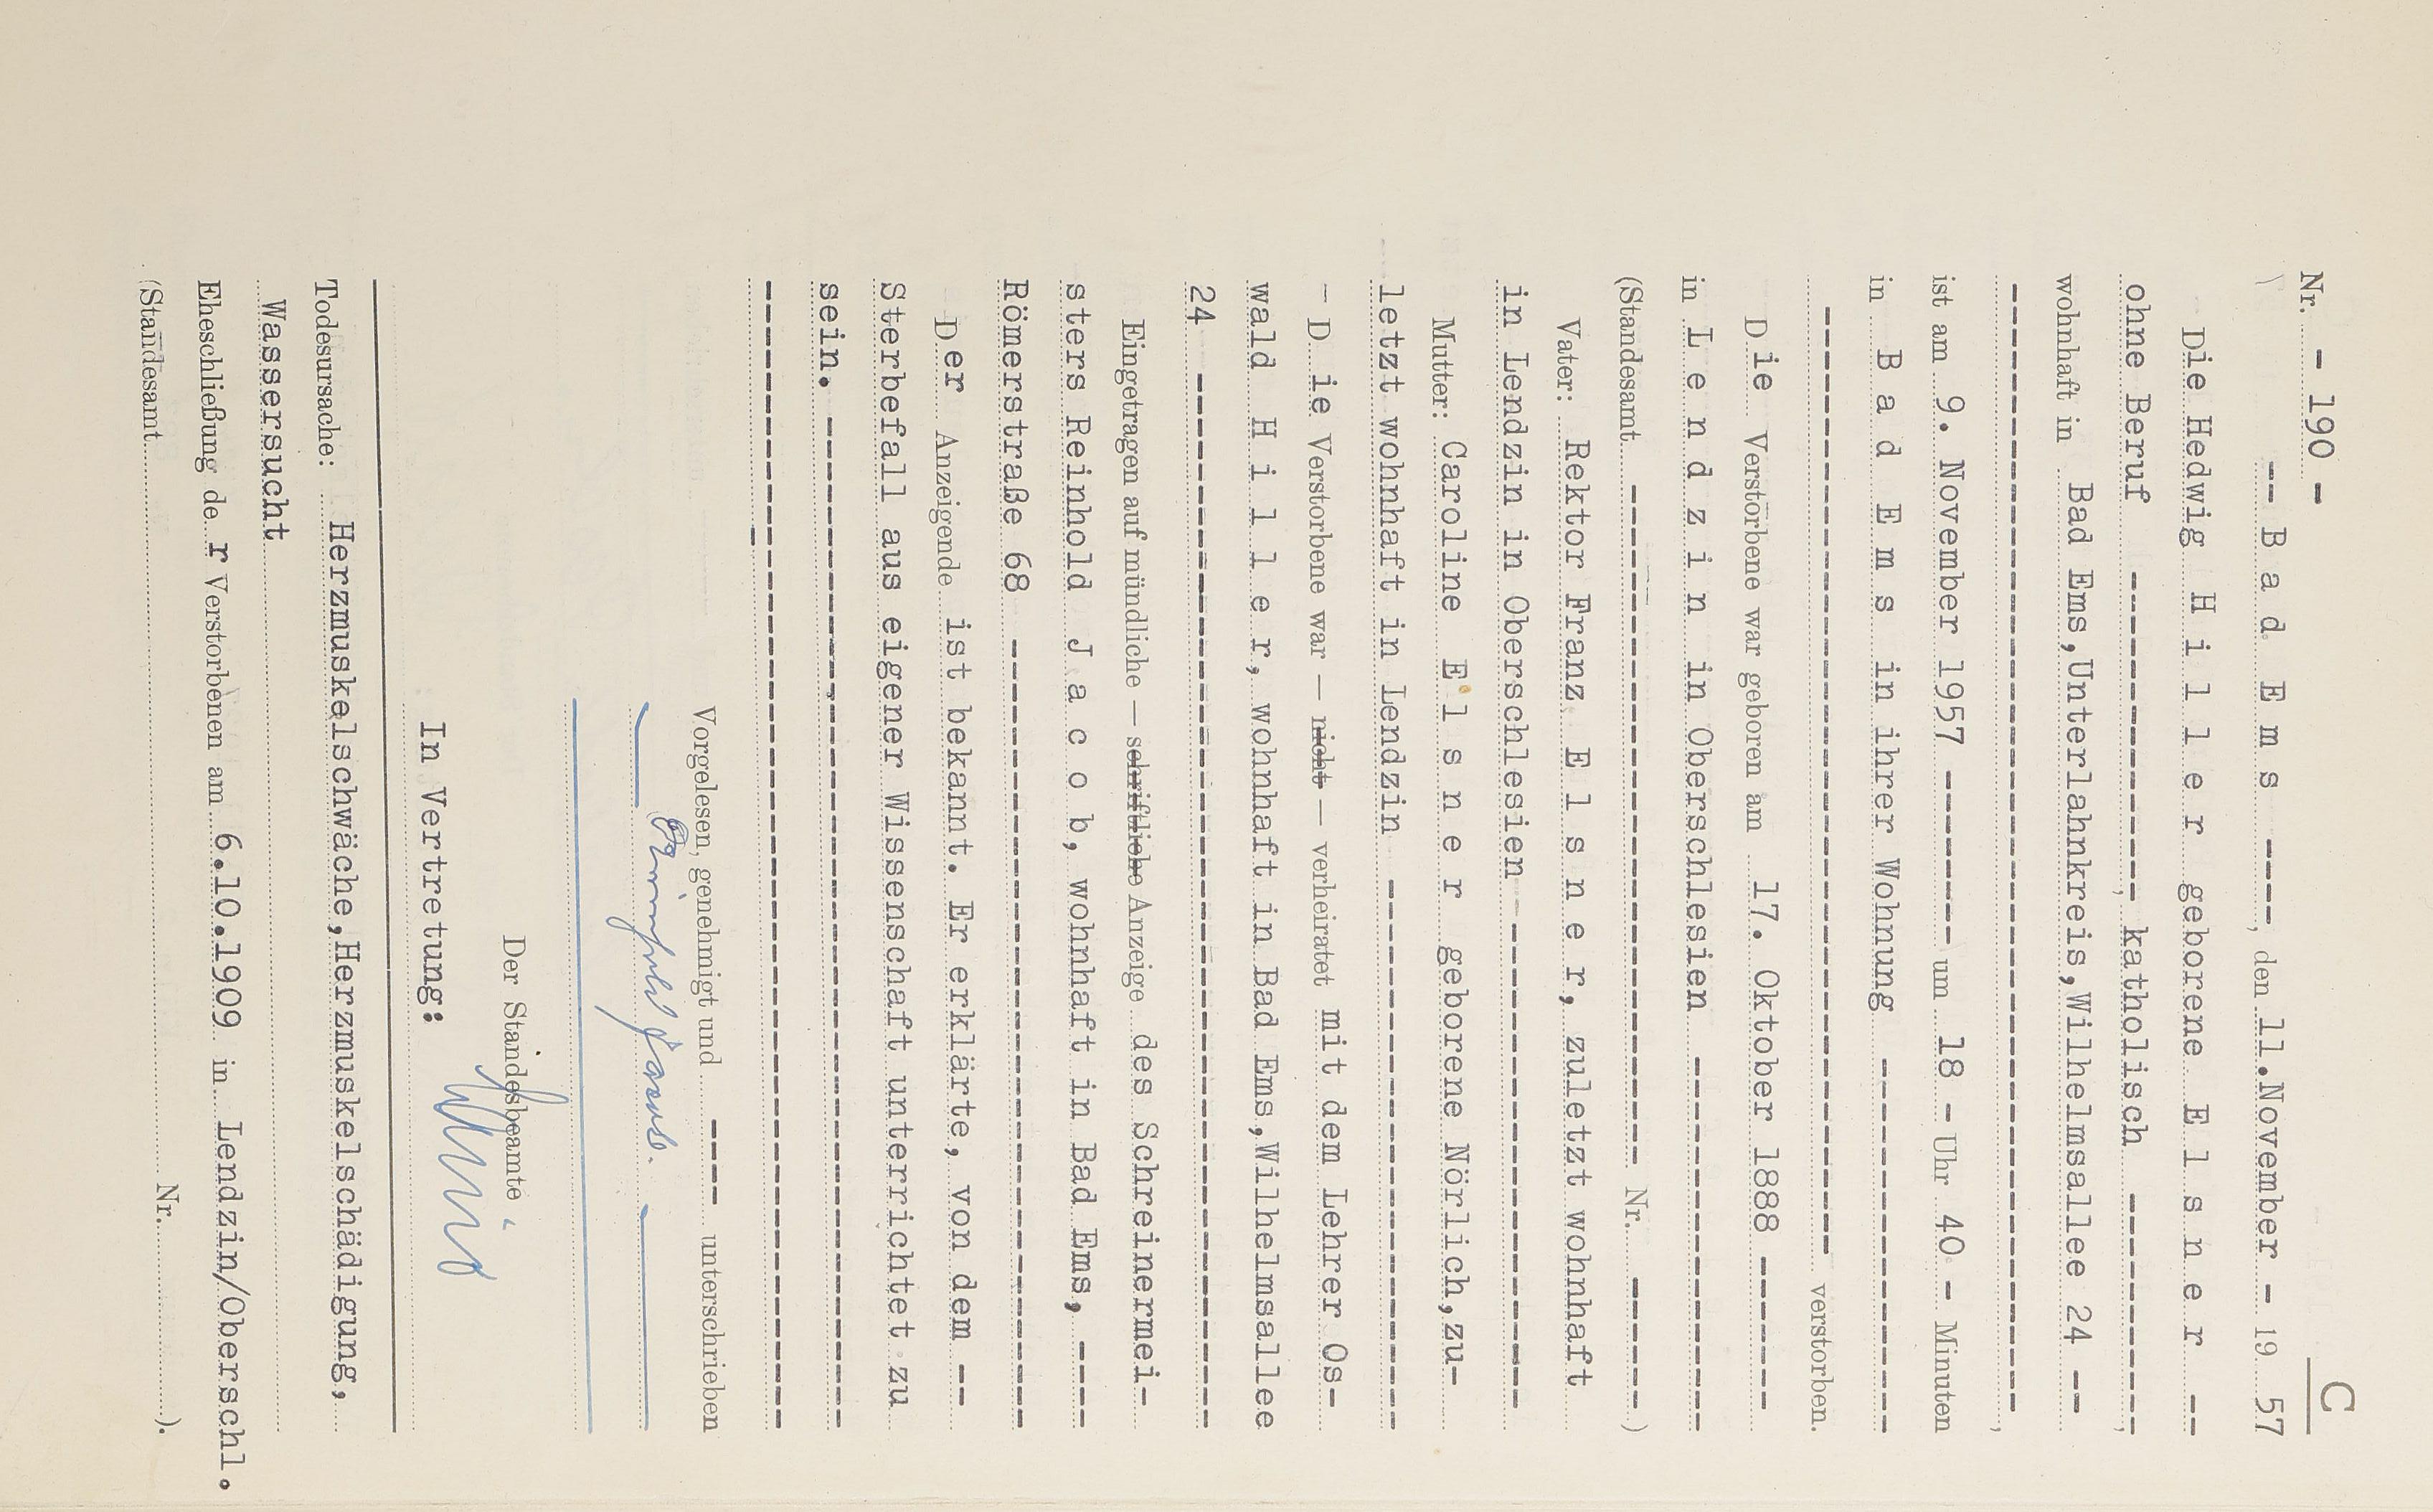 C
Nr. - 190 -
-- B a d E m s ----, den 11.November - 19 57
Die Hedwig H i l l e r geborene E l s n e r --
ohne Beruf ------------------, katholisch ------------,
wohnhaft in Bad Ems,Unterlahnkreis,Wilhelmsallee 24 --
------------------------------------------------------------,
ist am 9. November 1957 --------- um 18 - Uhr 40 - Minuten
in B a d E m s in ihrer Wohnung --------------------
-------------------------------------------------- verstorben.
D ie Verstorbene war geboren am 17. Oktober 1888 --------
in L e n d z i n in Oberschlesien --------------------
(Standesamt ------------------------------------ Nr. --------)
Vater: Rektor Franz E l s n e r, zuletzt wohnhaft
in Lendzin in Oberschlesien --------------------------
Mutter: Caroline E l s n e r geborene Nörlich,zu-
letzt wohnhaft in Lendzin ----------------------------
- D ie Verstorbene war — nicht — verheiratet mit dem Lehrer Os-
wald H i l l e r, wohnhaft in Bad Ems,Wilhelmsallee
24 -------------------------------------------------------
Eingetragen auf mündliche — schriftliche Anzeige des Schreinermei-
sters Reinhold J a c o b, wohnhaft in Bad Ems, ----
Römerstraße 68 ----------------------------------------
D er Anzeigende ist bekannt. Er erklärte, von dem --
Sterbefall aus eigener Wissenschaft unterrichtet zu
sein. ---------------------------------------------------
------------------------------------------------------------
Vorgelesen, genehmigt und ---- unterschrieben
Reinhold Jacob.
Der Standesbeamte
In Vertretung:
Todesursache: Herzmuskelschwäche,Herzmuskelschädigung,
Wassersucht
Eheschließung de r Verstorbenen am 6.10.1909 in Lendzin/Oberschl.
(Standesamt Nr. ).